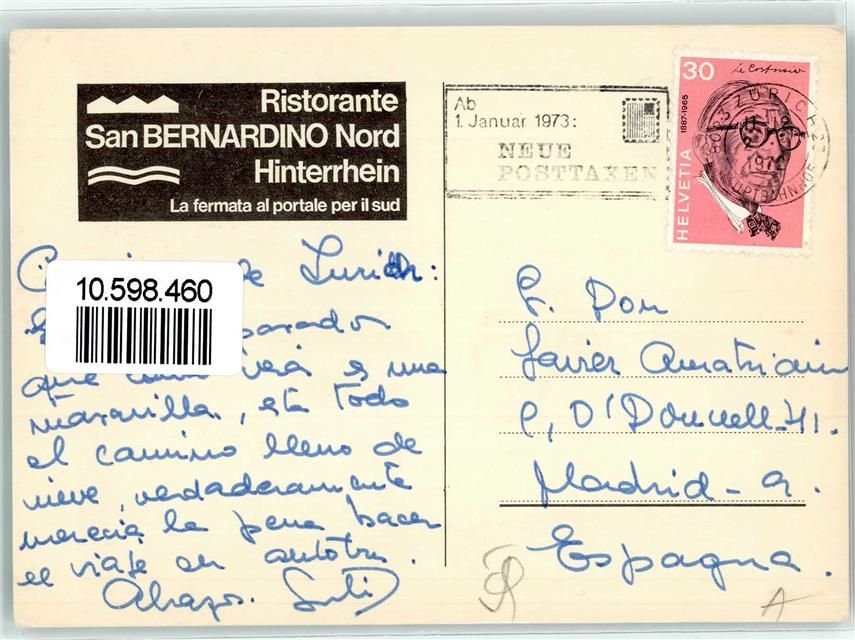 Ristorante
San BERNARDINO Nord
Hinterrhein
La fermata al portale per il sud
Ab
1. Januar 1973:
NEUE
POSTTAXEN
30
Le Corbusier
1887-1965
HELVETIA
ZÜRICH
HAUPTBAHNHOF
10.598.460
de Zurich:
parador
que verá es una
maravilla, está todo
el camino lleno de
nieve, verdaderamente
merecía la pena hacer
el viaje en
Abrazos.
S. Don
Javier Amatriain
C, O'Donnell-41.
Madrid-9.
España.